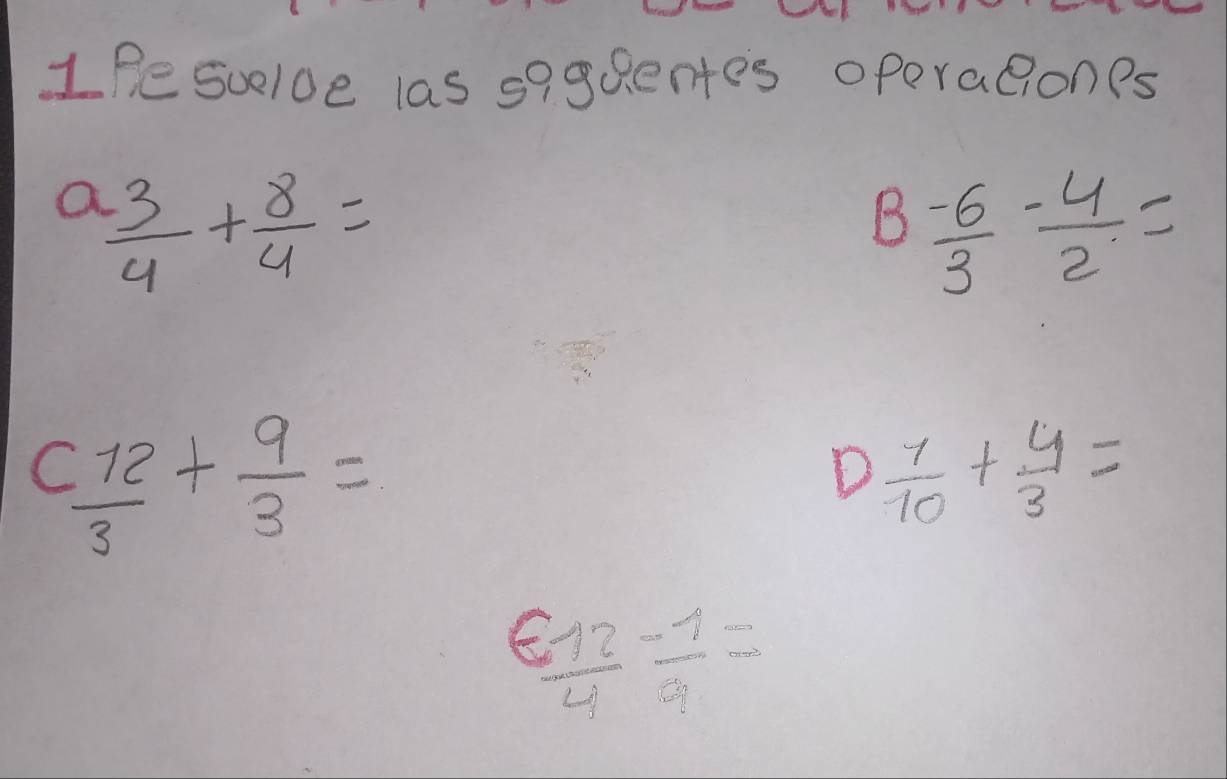 1 Resuelve las siguientes operaciones
a 3/4 + 8/4 =
B -6/3 - 4/2 =
C 12/3 + 9/3 =
D 1/10 + 4/3 =
E 12/4 - 1/9 =